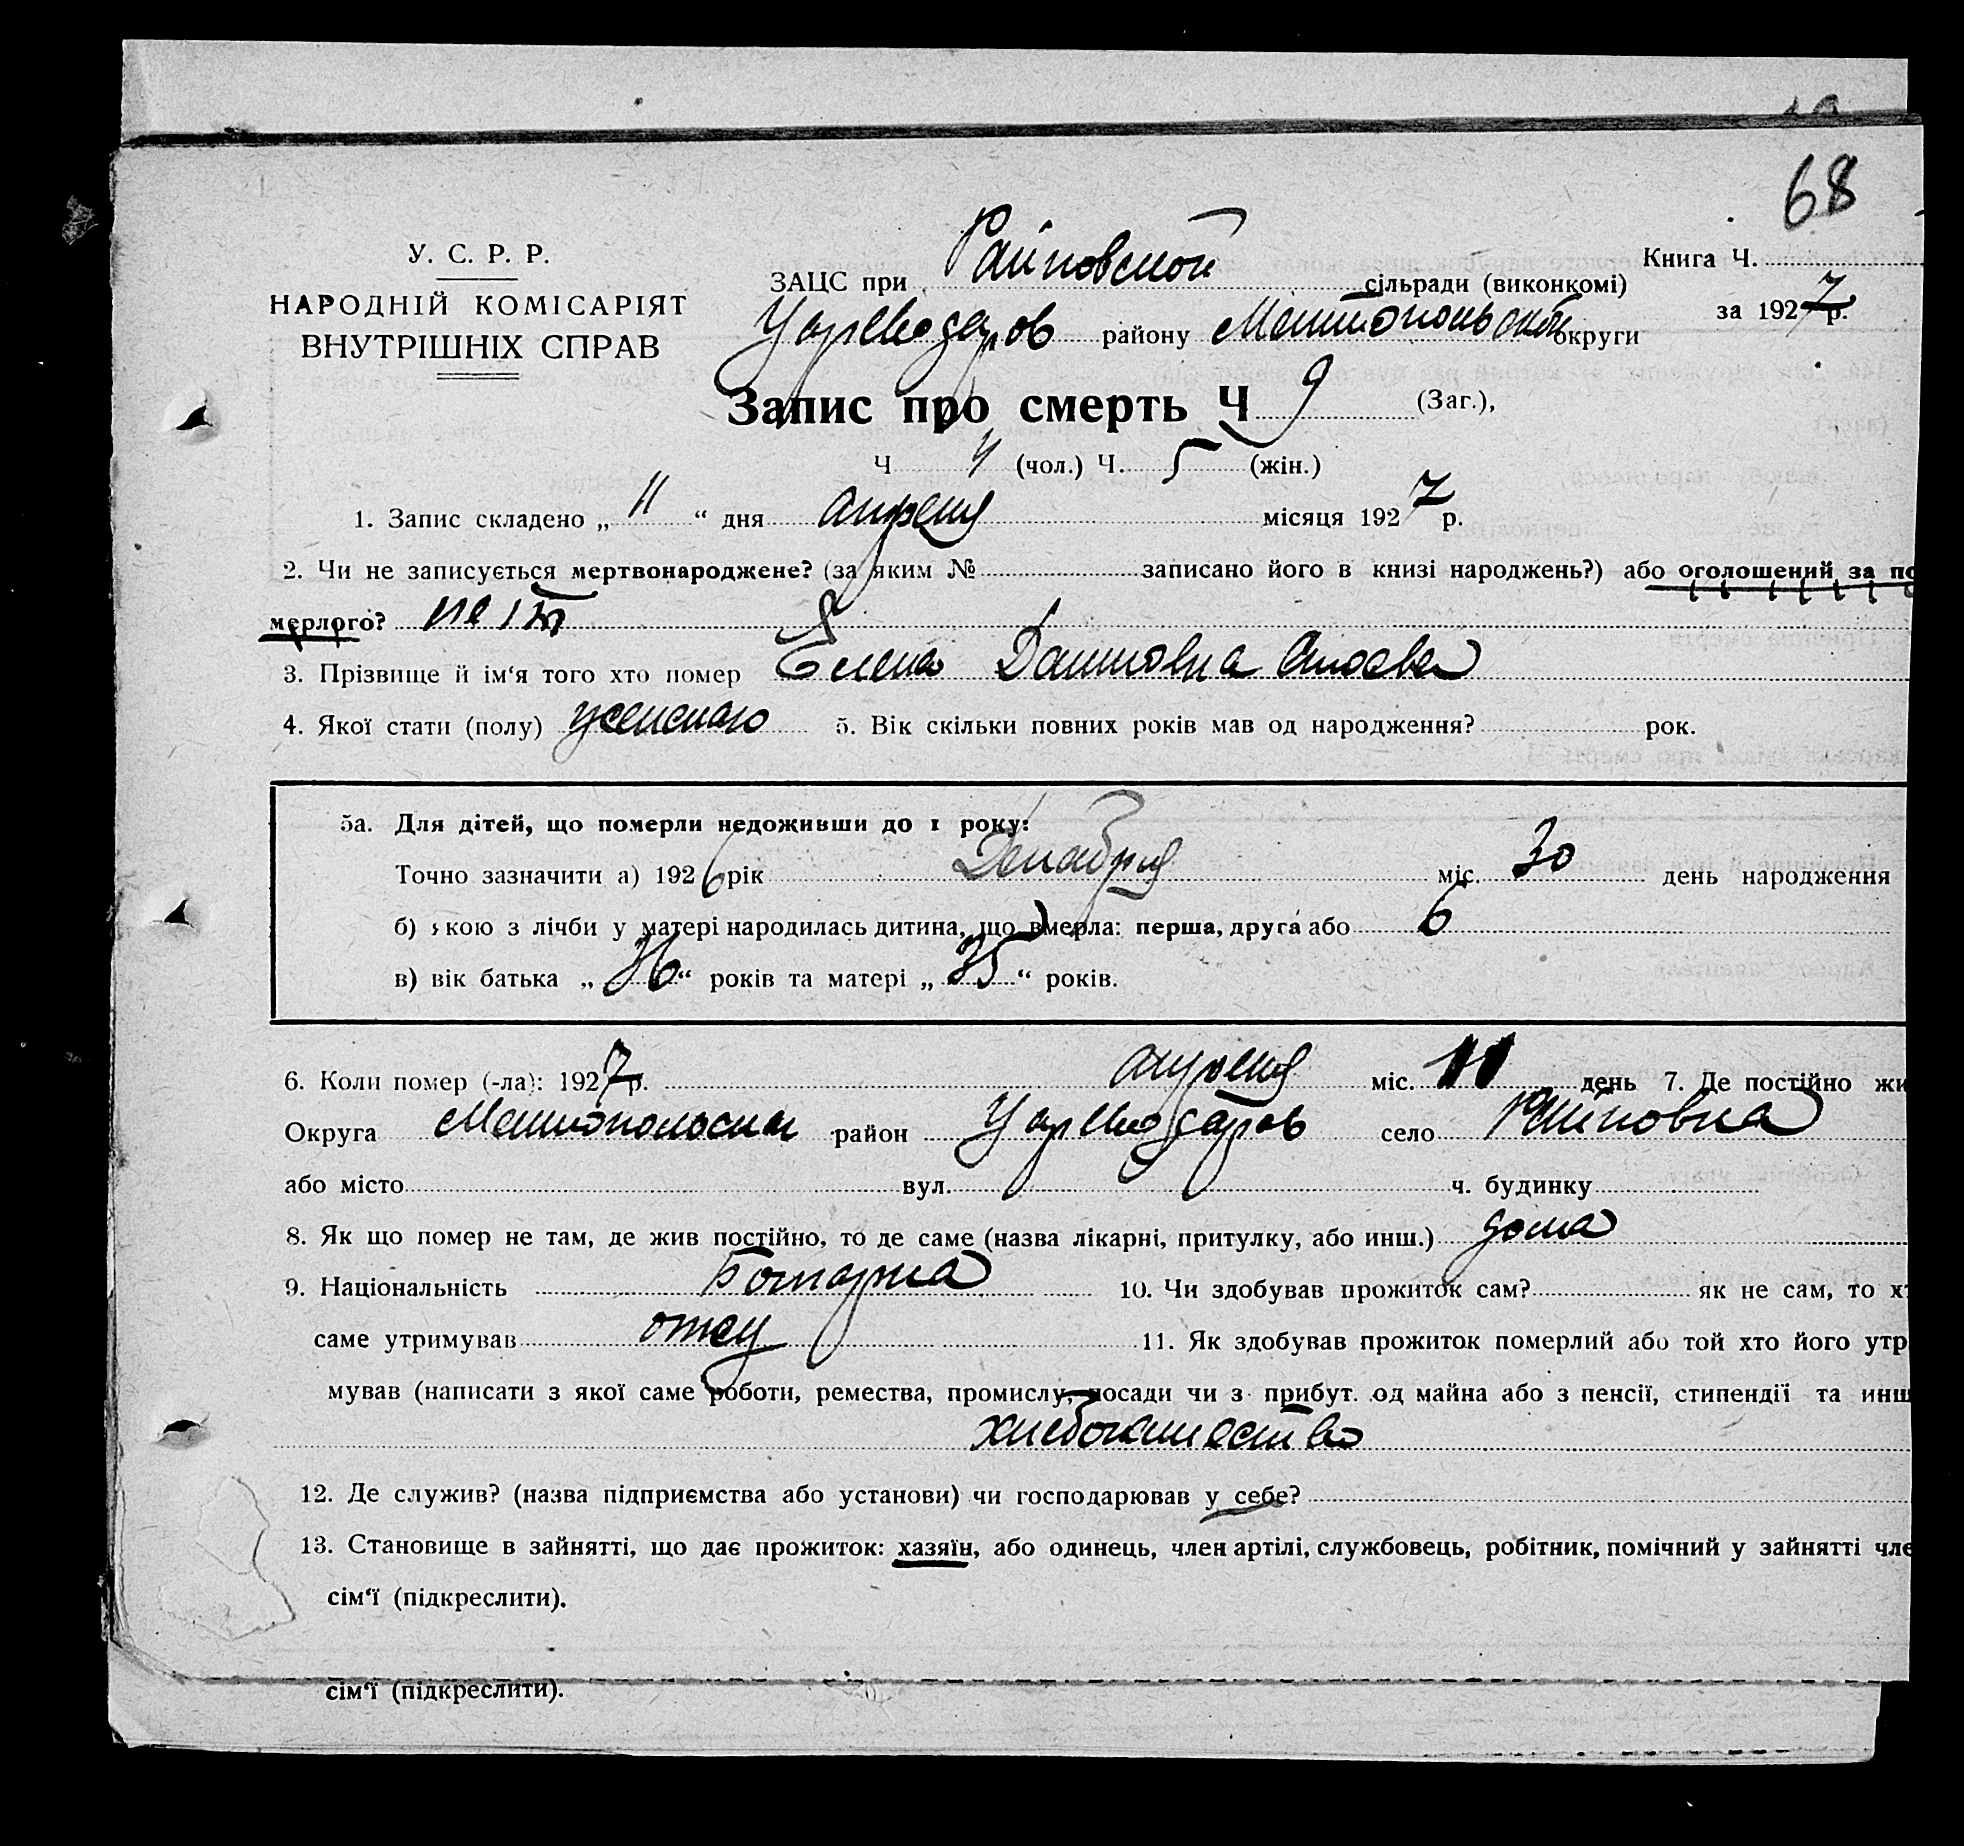 68
У. С. Р. Р.
НАРОДНІЙ КОМІСАРІЯТ
ВНУТРІШНІХ СПРАВ
ЗАЦС при Райновской сільради (виконкомі)
Книга Ч.
Цареводаров району Мелитопольской округи
за 1927 р.
Запис про смерть Ч 9 (Заг.),
Ч 4 (чол.) Ч. 5 (жін.)
1. Запис складено „ 11 “ дня апреля місяця 1927 р.
2. Чи не записується мертвонароджене? (за яким № записано його в книзі народжень?) або оголошений за по
мерлого? нет
3. Прізвище й ім‘я того хто помер Елена
4. Якої стати (полу) женскаго 5. Вік скільки повних років мав од народження? рок.
5а. Для дітей, що померли недоживши до 1 року:
Точно зазначити а) 1926 рік Декабря міс. 30 день народження
б) якою з лічби у матері народилась дитина, що вмерла: перша, друга або 6
в) вік батька „ 36 “ років та матері „ 35 “ років.
6. Коли помер (-ла): 1927 р. апреля міс. 11 день 7. Де постійно жи
Округа Мелитопольски район Цареводаров село Райновка
або місто вул. ч. будинку
8. Як що помер не там, де жив постійно, то де саме (назва лікарні, притулку, або инш.) дома
9. Національність Болгарка 10. Чи здобував прожиток сам? як не сам, то х
саме утримував отец 11. Як здобував прожиток померлий або той хто його утр
мував (написати з якої саме роботи, ремества, промислу, посади чи з прибут. од майна або з пенсії, стипендії та инш
хлебопашество
12. Де служив? (назва підприємства або установи) чи господарював у себе?
13. Становище в зайнятті, що дає прожиток: хазяїн, або одинець, член артілі, службовець, робітник, помічний у зайнятті чле
сім‘ї (підкреслити).
сім‘ї (підкреслити).